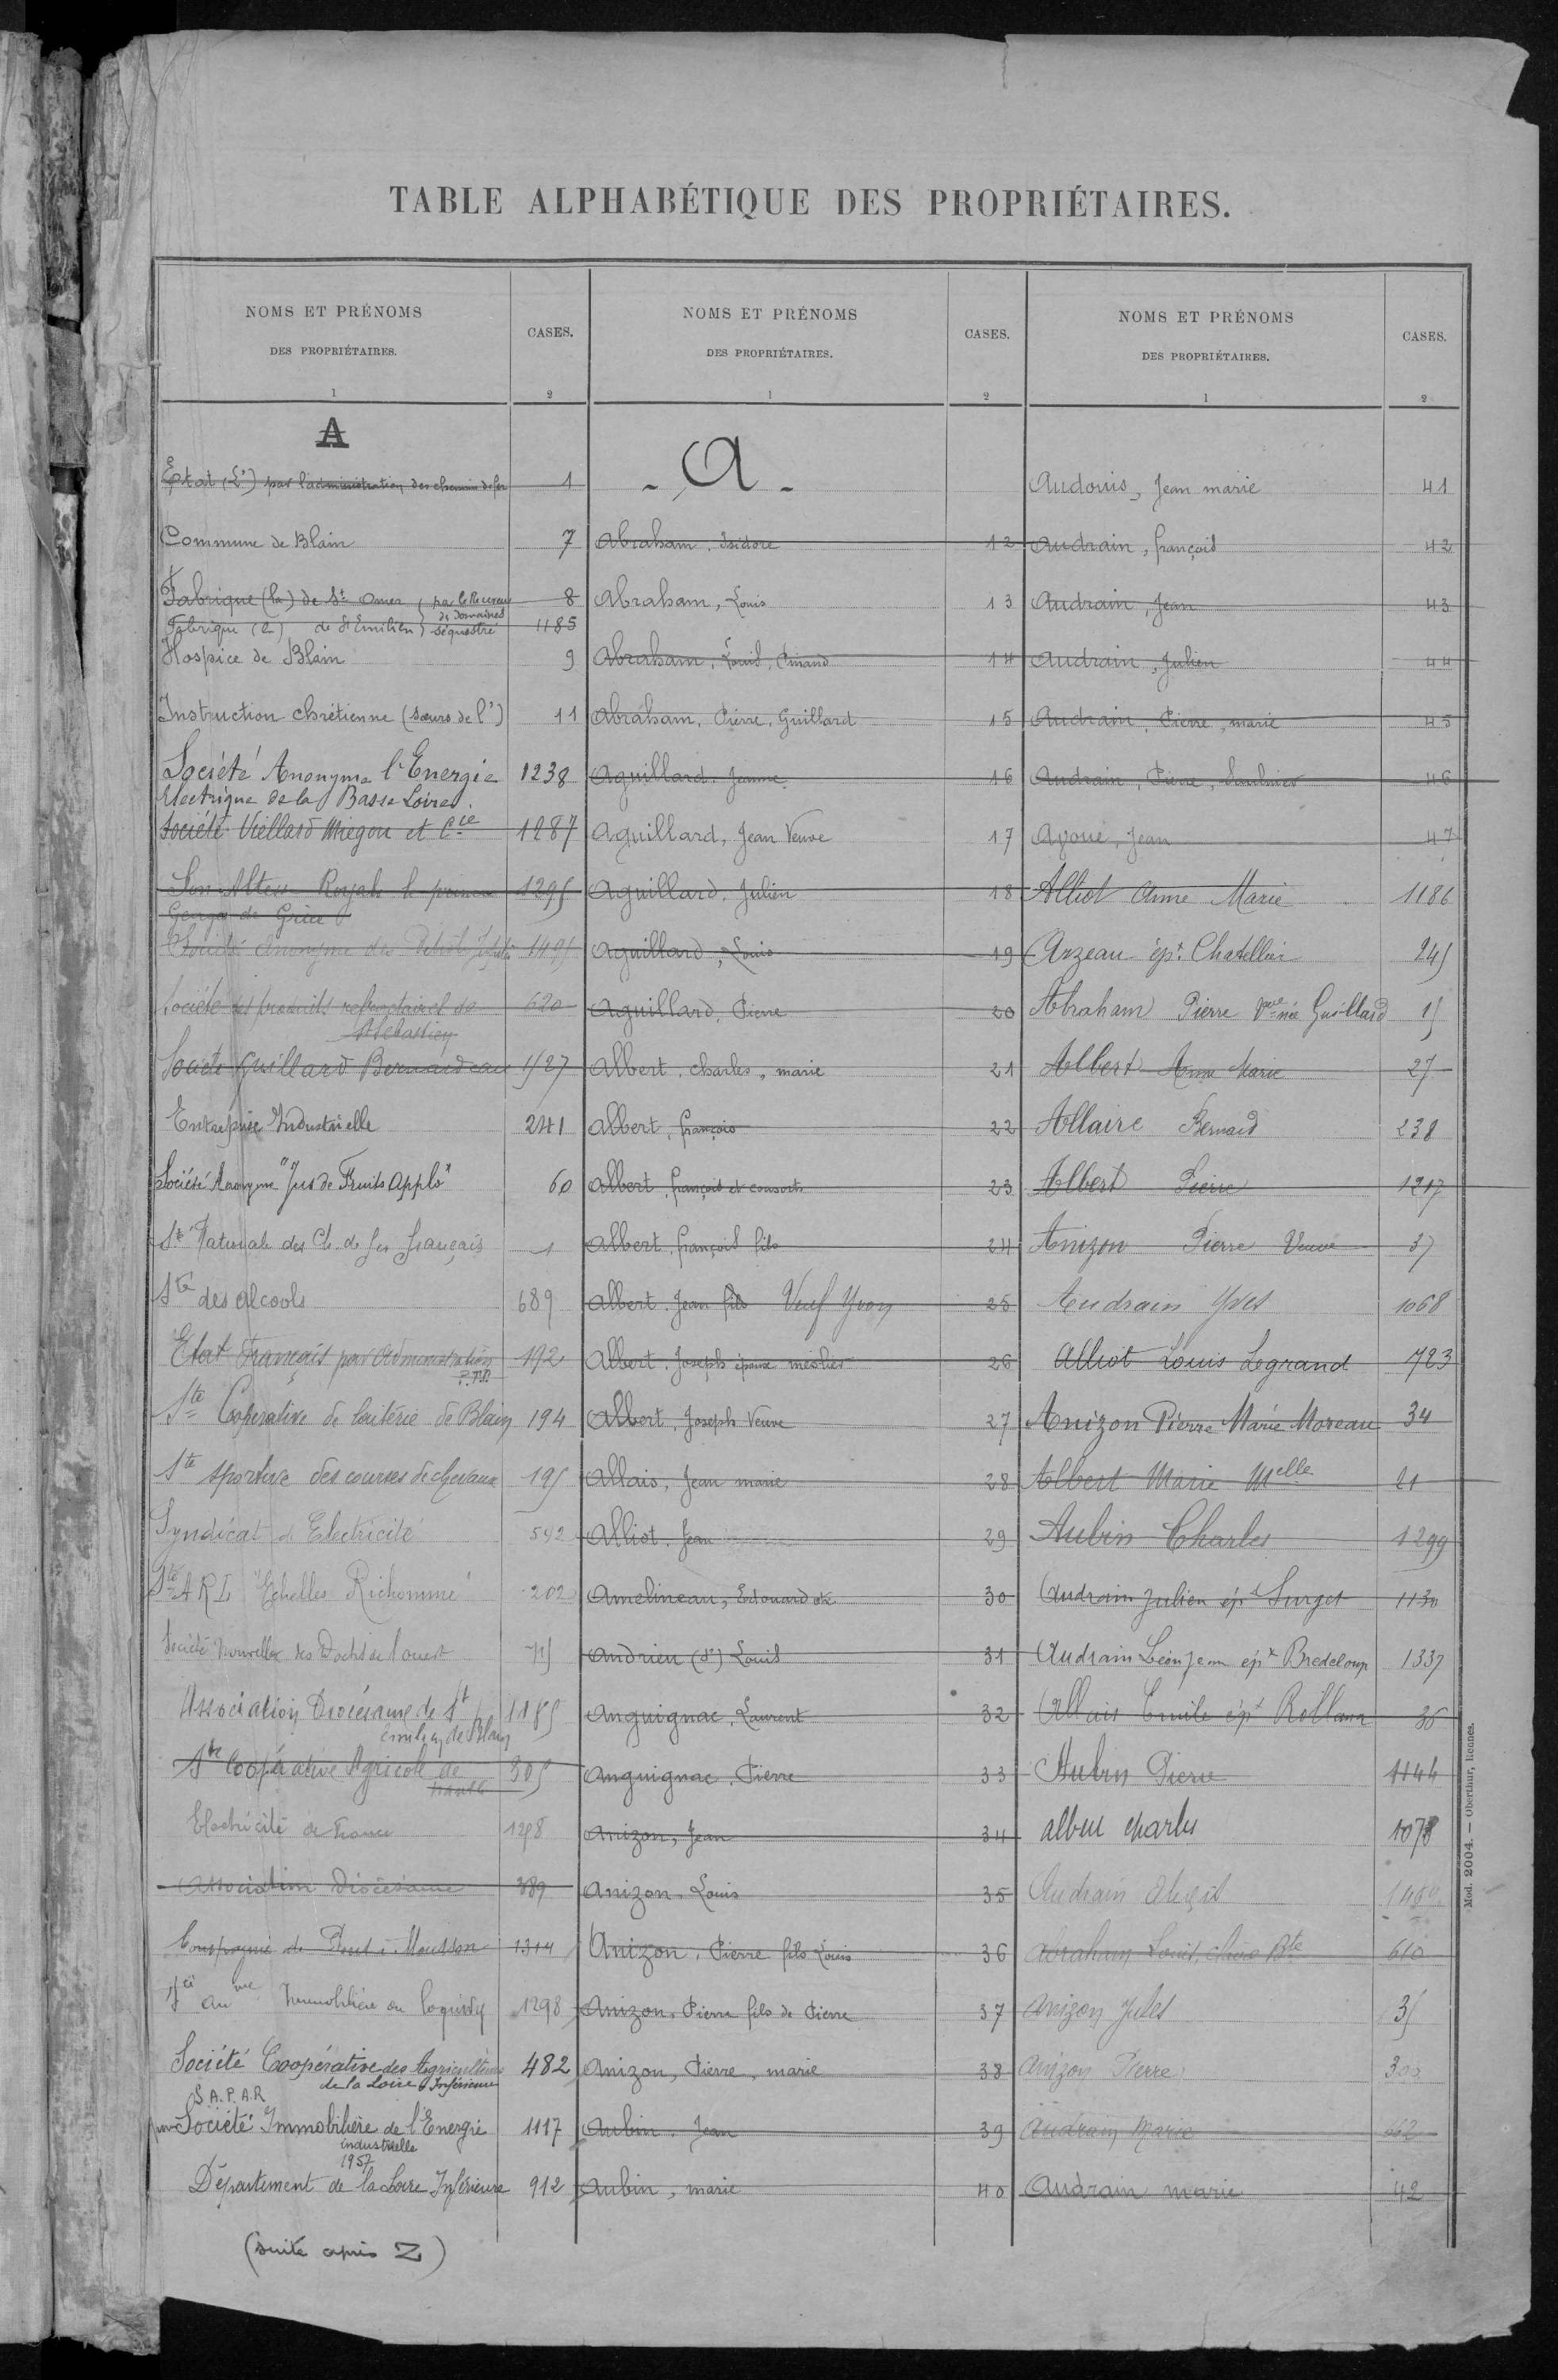 TABLE ALPHABÉTIQUE DES PROPRIÉTAIRES.
NOMS ET PRÉNOMS
DES PROPRIÉTAIRES.
CASES.
1
2
A
Etat (L') par l'administration des chemins de fer 1
Commune de Blain 7
Fabrique (la) de St Omer, par le Receveur 8
des Domaines
Fabrique (la) de St Emilien séquestre 1185
Hospice de Blain 9
Instruction chrétienne (sœurs de l') 11
Société Anonyme l'Energie 1238
Electrique de la Basse Loire.
Société Viellard Miegon et Cie 1287
Son Altesse Royale le prince 1295
Georges de Grèce
Société Anonyme des 1495
Société des produits réfractaires de 620
St Sébastien
Société Guillard Bernardeau 1527
Entreprise Industrielle 241
Société Anonyme "Jus de Fruits Applo" 60
Sté Nationale des Ch. de fer français 1
Sté des alcools 689
Etat Français par Administration 192
P.T.T.
Sté Coopérative de laiterie de Blain 194
Sté sportive des courses de chevaux 195
Syndicat d'Electricité 542
Sté A R L "Echelles Richomme" 202
Société Nouvelle des Docks de l'ouest 75
Association Diocésaine de St 1185
Emilien de Blain
Sté Coopérative Agricole de 305
Electricité de France 1298
Association Diocésaine 389
Compagnie de Pont à Mousson 1314
Sté Anme Immobilière 1298
Société Coopérative des Agriculteurs 482
de la Loire Inférieure
S.A.P.A.R
Société Immobilière de l'Energie 1117
industrielle
1957
Département de la Loire Inférieure 912
(suite après Z)
NOMS ET PRÉNOMS
DES PROPRIÉTAIRES.
CASES.
1
2
- A -
Abraham, Isidore 12
Abraham, Louis 13
Abraham, Louis, Pinard 14
Abraham, Pierre, Guillard 15
Aguillard, Jeanne 16
Aguillard, Jean Veuve 17
Aguillard, Julien 18
Aguillard, Louis 19
Aguillard, Pierre 20
Albert, charles, marie 21
Albert, françois 22
Albert, françois et consorts 23
Albert, françois fils 24
Albert, Jean fils Veuf Yvon 25
Albert, Joseph époux meslier 26
Albert, Joseph Veuve 27
Allais, Jean marie 28
Alliot, Jean 29
Amelineau, Edouard 30
Andrieu (d') Louis 31
Anguignac, Laurent 32
Anguignac, Pierre 33
Anizon, Jean 34
Anizon, Louis 35
Anizon, Pierre fils Louis 36
Anizon, Pierre fils de Pierre 37
Anizon, Pierre, marie 38
Aubin, Jean 39
Aubin, marie 40
NOMS ET PRÉNOMS
DES PROPRIÉTAIRES.
CASES.
1
2
Audouis, Jean marie 41
Audrain, françois 42
Audrain, Jean 43
Audrain, Julien 44
Audrain, Pierre, marie 45
Audrain, Pierre, Saulnier 46
Ayoue, Jean 47
Alliot Anne Marie 1186
Arzeau épt Chatellier 245
Abraham Pierre Vve née Guillard 15
Albert Anne Marie 27
Allaire Bernard 238
Albert Pierre 1217
Anizon Pierre Veuve 37
Audrain Yves 1068
Alliot Louis Legrand 723
Anizon Pierre Marie Moreau 34
Albert Marie Melle 21
Aubin Charles 1299
Audrain Julien épx Surget 1130
Audrain Léon Jean épx Bredeloup 1337
Allais Emile épx Rolland 36
Aubin Pierre 1144
albert charles 1078
Audrain Alexis
Abraham Louis, 610
Anizon Jules 35
Anizon Pierre 300
Audrain Marie 662
Audrain marie 42
Mod. 2004. — Oberthur, Rennes.